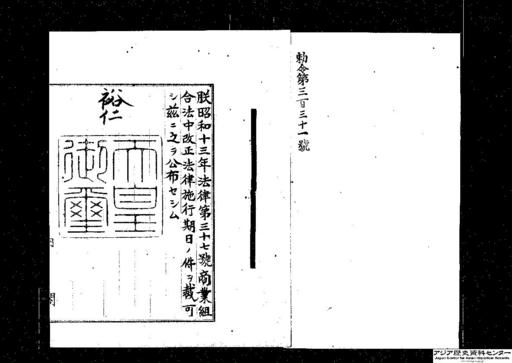 勅令第三百三十一號
朕昭和十三年法律第三十七號商業組
合法中改正法律施行期日ノ件ヲ裁可
シ茲ニ之ヲ公布セシム
裕仁
天皇
御璽
アジア歴史資料センター
Japan Center for Asian Historical Records